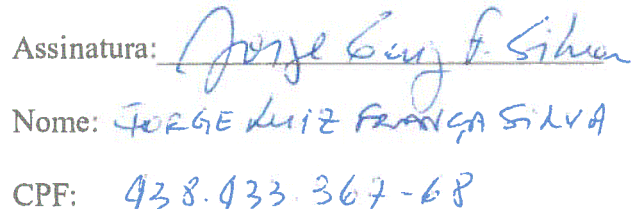 Assinatura: Jorge Luiz F. Silva
Nome: JORGE LUIZ FRANÇA SILVA
CPF: 438.433.367-68